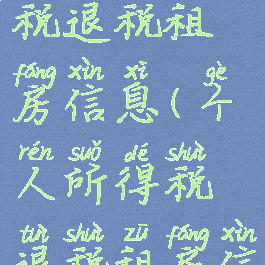 税退税租
fáng xìn xī gè
房信息(个
rén suǒ dé shuì
人所得税
tuì shuì zū fáng xìn
退税租房信